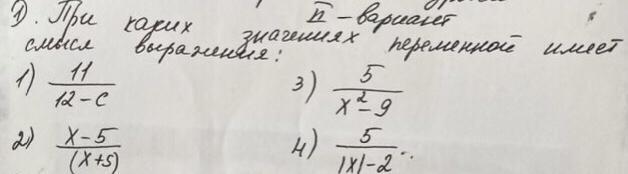 1). При каких значениях переменной имеет
II - вариант
смысл выражения:
1) 11/(12-c)
3) 5/(x²-9)
2) (x-5)/(x+5)
4) 5/(|x|-2)